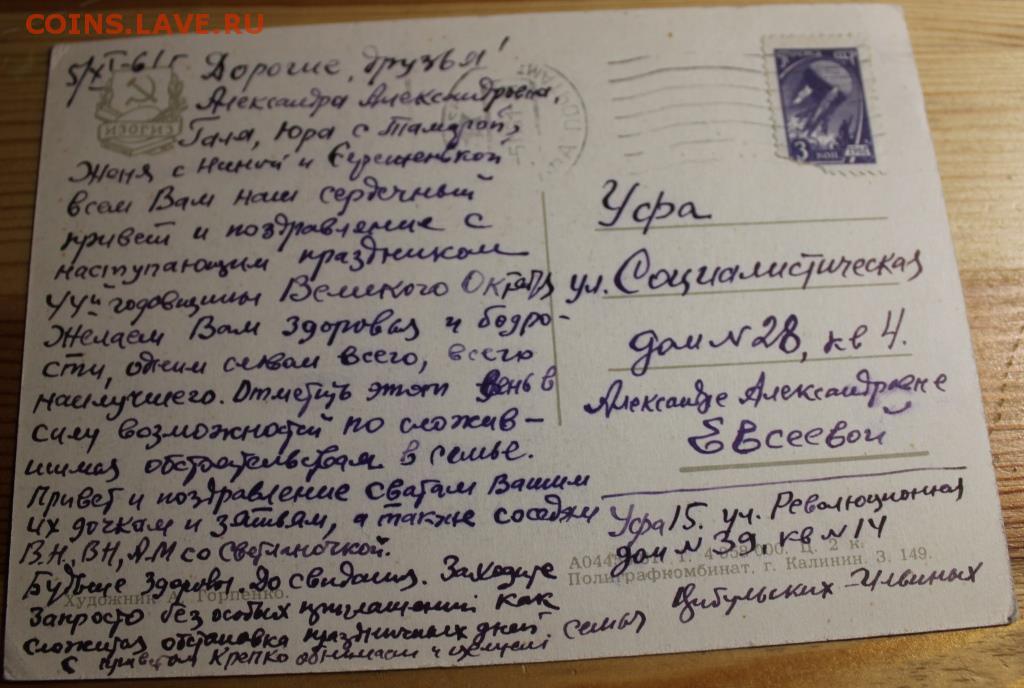 COINS.LAVE.RU
5/XI-61 г Дорогие друзья!
Александра Александровна,
Галя, Юра с Тамарой,
Женя с Ниной и
всем Вам наш сердечный
привет и поздравление с
наступающим праздником
44ой годовщины Великого Октября
Желаем Вам здоровья и бодро-
сти, одним словом всего, всего
наилучшего. Отметить этот день в
силу возможностей по сложив-
шимся обстоятельствам в семье.
Привет и поздравление сватам Вашим
их дочкам и зятьям, а также соседям
В.Н, ВН, А.М со Светланочкой.
Будьте здоровы. До свидания. Заходите
Запросто без особых приглашений как
сложится обстановка праздничных дней.
С приветом Крепко обнимаем и целуем
семья Цибульских-Ильиных
ИЗОГИЗ
ПОЧТАМТ
3 КОП
Уфа
ул. Социалистическая
дом N 28, кв 4.
Александре Александровне
Евсеевой
Уфа 15. ул. Революционная
дом N 39, кв N 14
000. Ц. 2 к.
Полиграфкомбинат, г. Калинин. З. 149.
Художник А. Горпенко.